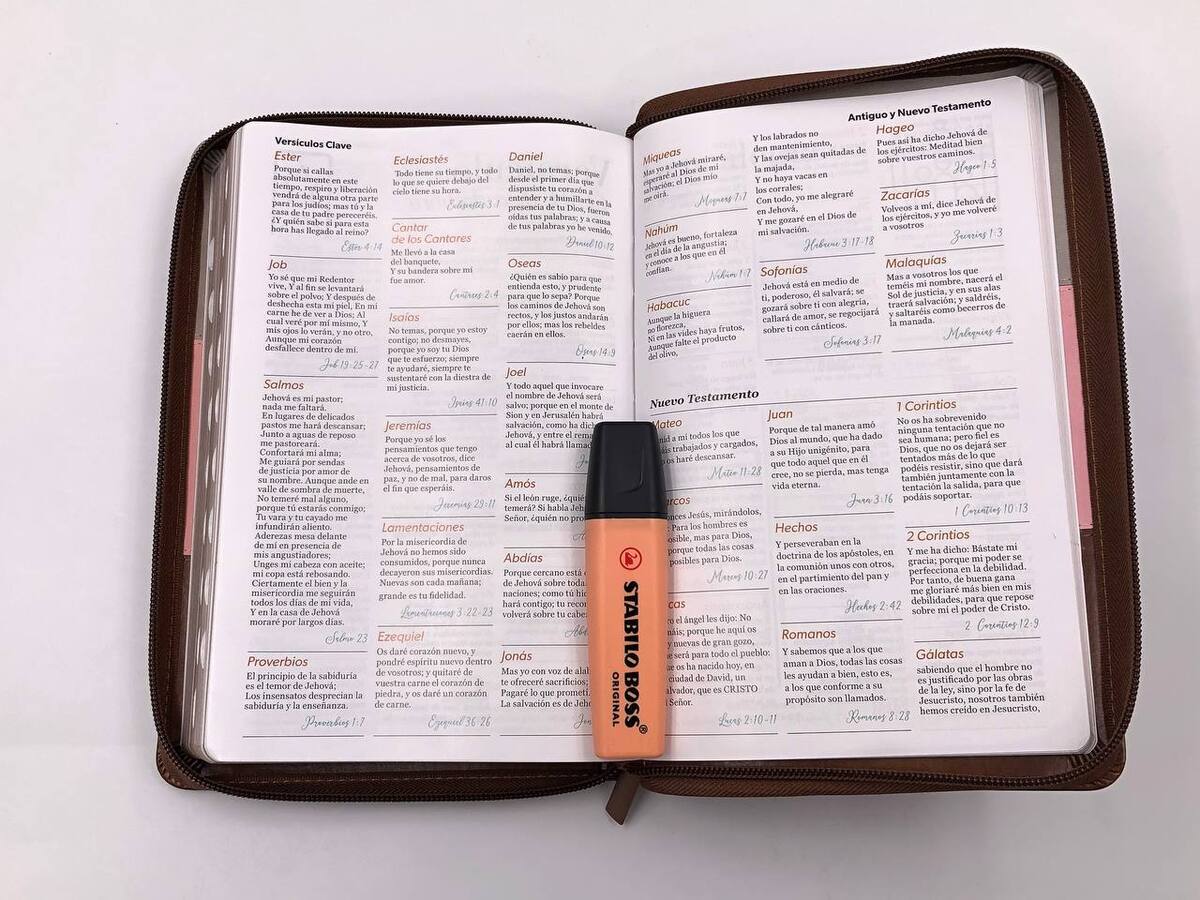 Versículos Clave
Ester
Porque si callas
absolutamente en este
tiempo, respiro y liberación
vendrá de alguna otra parte
para los judíos; mas tú y la
casa de tu padre pereceréis.
¿Y quién sabe si para esta
hora has llegado al reino?
Ester 4:14
Job
Yo sé que mi Redentor
vive, Y al fin se levantará
sobre el polvo; Y después de
deshecha esta mi piel, En mi
carne he de ver a Dios; Al
cual veré por mí mismo, Y
mis ojos lo verán, y no otro,
Aunque mi corazón
desfallece dentro de mí.
Job 19:25-27
Salmos
Jehová es mi pastor;
nada me faltará.
En lugares de delicados
pastos me hará descansar;
Junto a aguas de reposo
me pastoreará.
Confortará mi alma;
Me guiará por sendas
de justicia por amor de
su nombre. Aunque ande en
valle de sombra de muerte,
No temeré mal alguno,
porque tú estarás conmigo;
Tu vara y tu cayado me
infundirán aliento.
Aderezas mesa delante
de mí en presencia de
mis angustiadores;
Unges mi cabeza con aceite;
mi copa está rebosando.
Ciertamente el bien y la
misericordia me seguirán
todos los días de mi vida,
Y en la casa de Jehová
moraré por largos días.
Salmo 23
Proverbios
El principio de la sabiduría
es el temor de Jehová;
Los insensatos desprecian la
sabiduría y la enseñanza.
Proverbios 1:7
Eclesiastés
Todo tiene su tiempo, y todo
lo que se quiere debajo del
cielo tiene su hora.
Eclesiastés 3:1
Cantar
de los Cantares
Me llevó a la casa
del banquete,
Y su bandera sobre mí
fue amor.
Cantares 2:4
Isaías
No temas, porque yo estoy
contigo; no desmayes,
porque yo soy tu Dios
que te esfuerzo; siempre
te ayudaré, siempre te
sustentaré con la diestra de
mi justicia.
Isaías 41:10
Jeremías
Porque yo sé los
pensamientos que tengo
acerca de vosotros, dice
Jehová, pensamientos de
paz, y no de mal, para daros
el fin que esperáis.
Jeremías 29:11
Lamentaciones
Por la misericordia de
Jehová no hemos sido
consumidos, porque nunca
decayeron sus misericordias.
Nuevas son cada mañana;
grande es tu fidelidad.
Lamentaciones 3:22-23
Ezequiel
Os daré corazón nuevo, y
pondré espíritu nuevo dentro
de vosotros; y quitaré de
vuestra carne el corazón de
piedra, y os daré un corazón
de carne.
Ezequiel 36:26
Daniel
Daniel, no temas; porque
desde el primer día que
dispusiste tu corazón a
entender y a humillarte en la
presencia de tu Dios, fueron
oídas tus palabras; y a causa
de tus palabras yo he venido.
Daniel 10:12
Oseas
¿Quién es sabio para que
entienda esto, y prudente
para que lo sepa? Porque
los caminos de Jehová son
rectos, y los justos andarán
por ellos; mas los rebeldes
caerán en ellos.
Oseas 14:9
Joel
Y todo aquel que invocare
el nombre de Jehová será
salvo; porque en el monte de
Sion y en Jerusalén habrá
salvación, como ha dicho
Jehová, y entre el
al cual él habrá
Amós
Si el león ruge, ¿quién
temerá? Si habla
Señor, ¿quién no
Abdías
Porque cercano está
de Jehová sobre
naciones; como tú
hará contigo; tu
volverá sobre tu
Jonás
Mas yo con voz de
te ofreceré sacrificios;
Pagaré lo que
La salvación es de
Antiguo y Nuevo Testamento
Miqueas
Mas yo a Jehová miraré,
esperaré al Dios de mi
salvación; el Dios mío
me oirá.
Miqueas 7:7
Nahúm
Jehová es bueno, fortaleza
en el día de la angustia;
y conoce a los que en él
confían.
Nahúm 1:7
Habacuc
Aunque la higuera
no florezca,
Ni en las vides haya frutos,
Aunque falte el producto
del olivo,
Y los labrados no
den mantenimiento,
Y las ovejas sean quitadas de
la majada,
Y no haya vacas en
los corrales;
Con todo, yo me alegraré
en Jehová,
Y me gozaré en el Dios de
mi salvación.
Habacuc 3:17-18
Sofonías
Jehová está en medio de
ti, poderoso, él salvará; se
gozará sobre ti con alegría,
callará de amor, se regocijará
sobre ti con cánticos.
Sofonías 3:17
Hageo
Pues así ha dicho Jehová de
los ejércitos: Meditad bien
sobre vuestros caminos.
Hageo 1:5
Zacarías
Volveos a mí, dice Jehová de
los ejércitos, y yo me volveré
a vosotros
Zacarías 1:3
Malaquías
Mas a vosotros los que
teméis mi nombre, nacerá el
Sol de justicia, y en sus alas
traerá salvación; y saldréis,
y saltaréis como becerros de
la manada.
Malaquías 4:2
Nuevo Testamento
Mateo
a mí todos los que
trabajados y cargados,
os haré descansar.
Mateo 11:28
Jesús, mirándolos,
Para los hombres es
mas para Dios,
porque todas las cosas
posibles para Dios.
Marcos 10:27
el ángel les dijo: No
porque he aquí os
nuevas de gran gozo,
será para todo el pueblo:
os ha nacido hoy, en
ciudad de David, un
que es CRISTO
Señor.
Lucas 2:10-11
Juan
Porque de tal manera amó
Dios al mundo, que ha dado
a su Hijo unigénito, para
que todo aquel que en él
cree, no se pierda, mas tenga
vida eterna.
Juan 3:16
Hechos
Y perseveraban en la
doctrina de los apóstoles, en
la comunión unos con otros,
en el partimiento del pan y
en las oraciones.
Hechos 2:42
Romanos
Y sabemos que a los que
aman a Dios, todas las cosas
les ayudan a bien, esto es,
a los que conforme a su
propósito son llamados.
Romanos 8:28
1 Corintios
No os ha sobrevenido
ninguna tentación que no
sea humana; pero fiel es
Dios, que no os dejará ser
tentados más de lo que
podéis resistir, sino que dará
también juntamente con la
tentación la salida, para que
podáis soportar.
1 Corintios 10:13
2 Corintios
Y me ha dicho: Bástate mi
gracia; porque mi poder se
perfecciona en la debilidad.
Por tanto, de buena gana
me gloriaré más bien en mis
debilidades, para que repose
sobre mí el poder de Cristo.
2 Corintios 12:9
Gálatas
sabiendo que el hombre no
es justificado por las obras
de la ley, sino por la fe de
Jesucristo, nosotros también
hemos creído en Jesucristo,
STABILO BOSS®
ORIGINAL